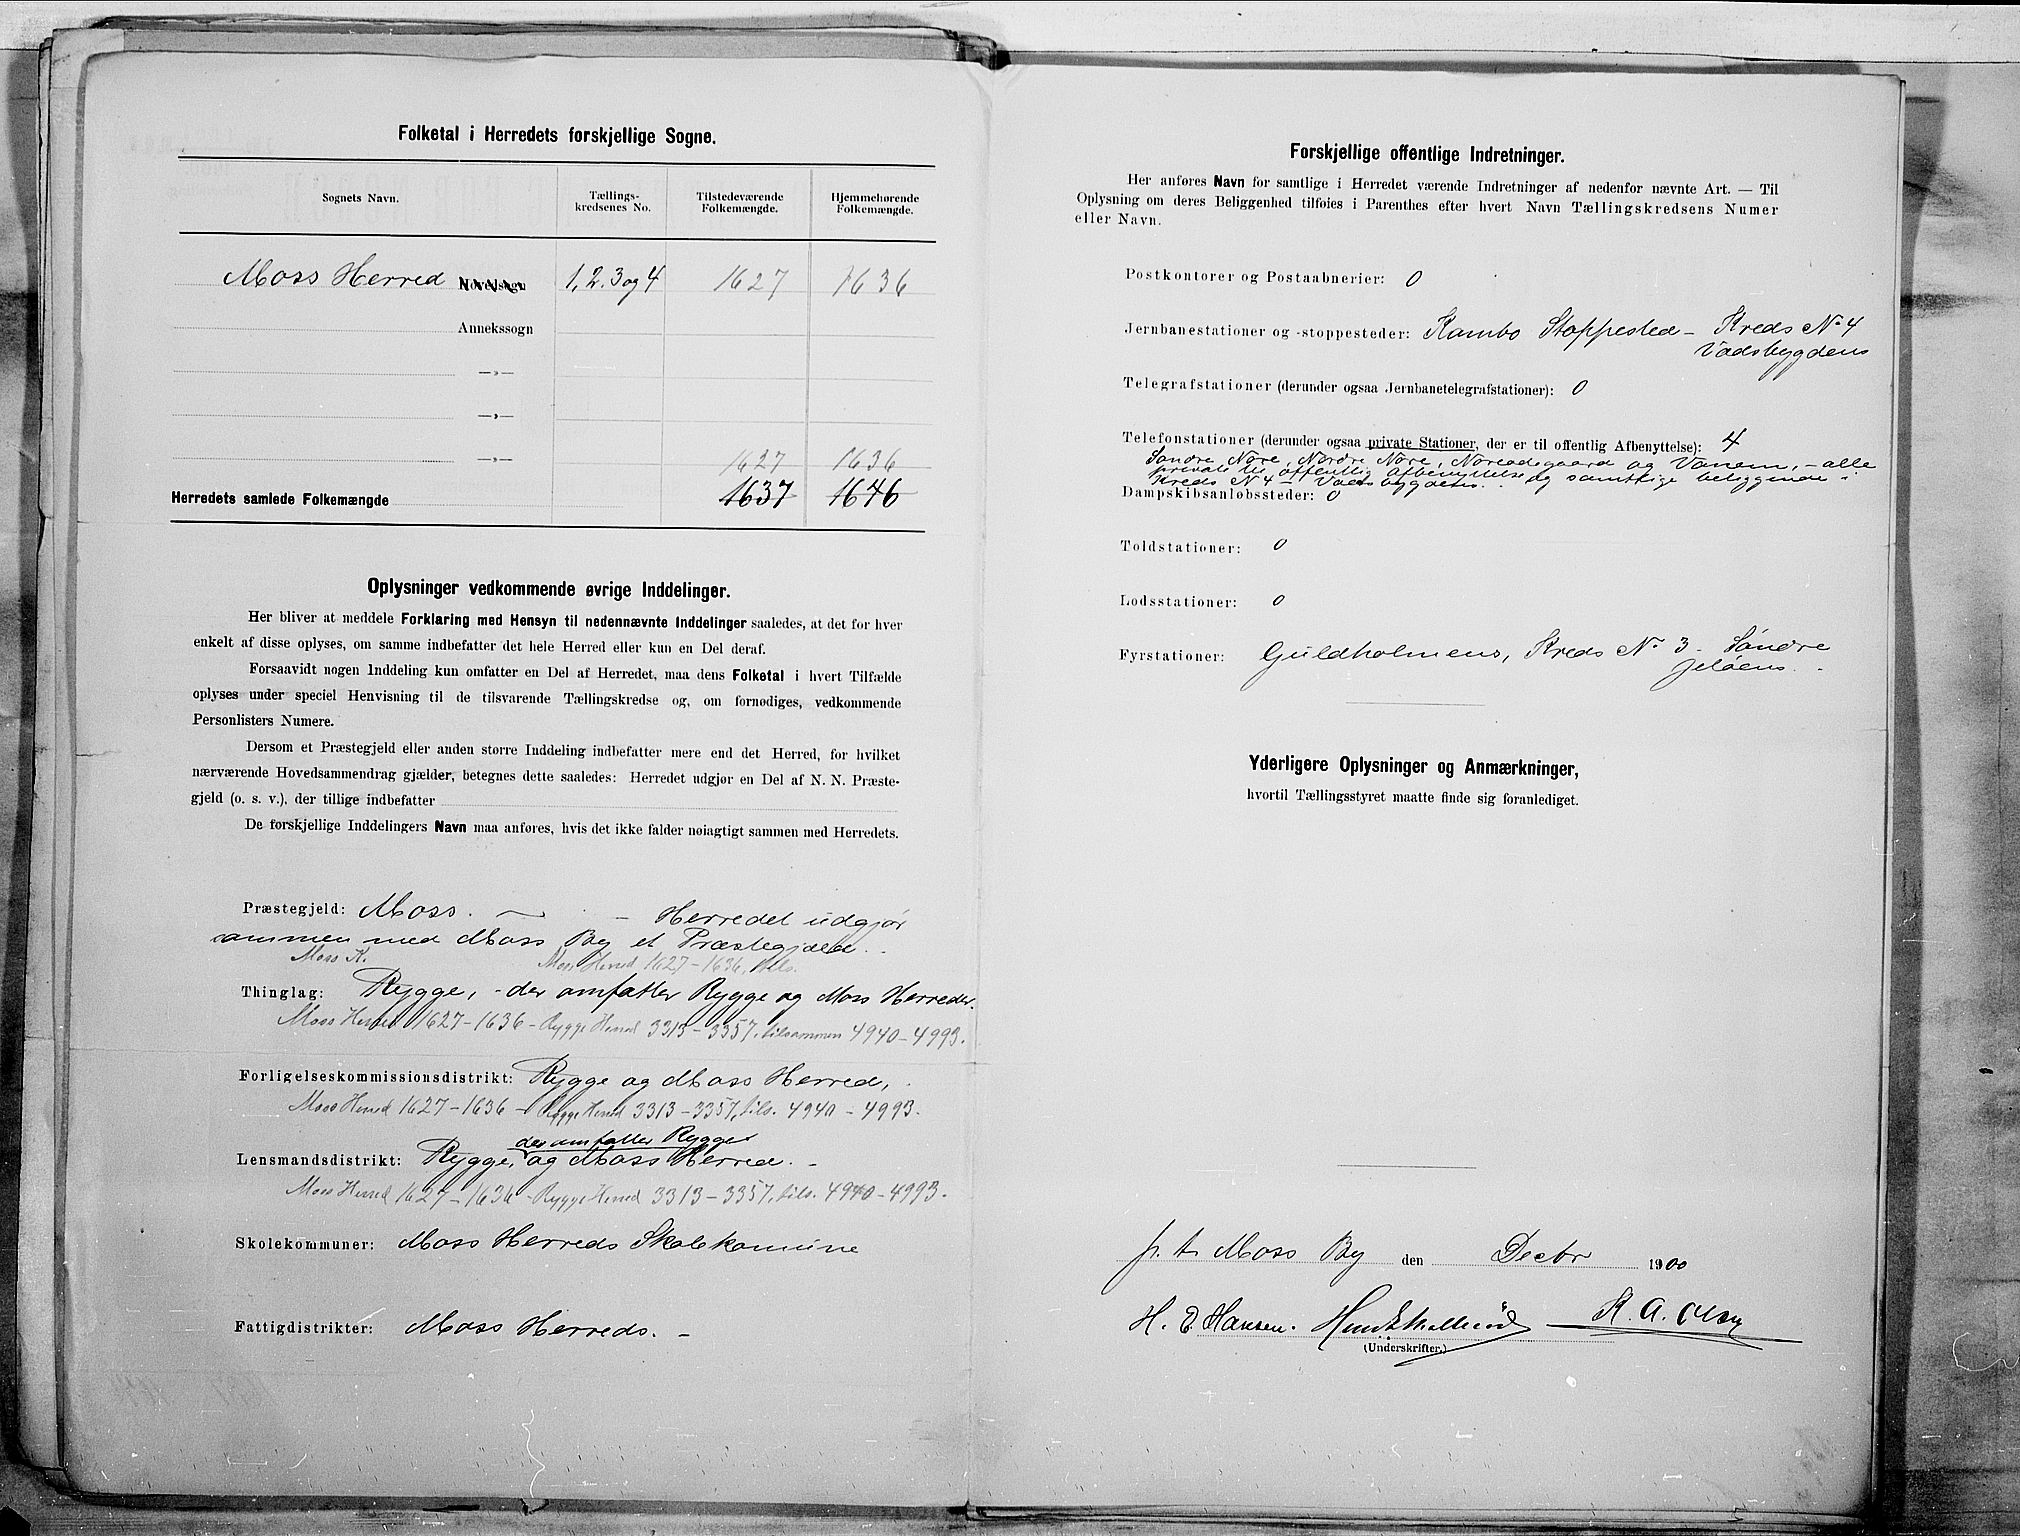 Folketal i Herredets forskjellige Sogne.
Sognets Navn.
Tællings-
kredsenes No.
Tilstedeværende
Folkemængde.
Hjemmehørende
Folkemængde.
Moss Herred Hovedsogn 1, 2, 3 og 4 1627 1636
Annekssogn
—»—
—»—
1627 1636
Herredets samlede Folkemængde 1637 1646
Oplysninger vedkommende øvrige Inddelinger.
Her bliver at meddele Forklaring med Hensyn til nedennævnte Inddelinger saaledes, at det for hver
enkelt af disse oplyses, om samme indbefatter det hele Herred eller kun en Del deraf.
Forsaavidt nogen Inddeling kun omfatter en Del af Herredet, maa dens Folketal i hvert Tilfælde
oplyses under speciel Henvisning til de tilsvarende Tællingskredse og, om fornødiges, vedkommende
Personlisters Numere.
Dersom et Præstegjeld eller anden større Inddeling indbefatter mere end det Herred, for hvilket
nærværende Hovedsammendrag gjælder, betegnes dette saaledes: Herredet udgjør en Del af N. N. Præste-
gjeld (o. s. v.), der tillige indbefatter
De forskjellige Inddelingers Navn maa anføres, hvis det ikke falder nøiagtigt sammen med Herredets.
Præstegjeld: Moss. — – Herredet udgjør
sammen med Moss By et Præstegjæld.
Moss K. Moss Herred 1627 – 1636, tils.
Thinglag: Rygge, - der omfatter Rygge og Moss Herreder.
Moss Herred 1627 – 1636 – Rygge Herred 3313 – 3357, tilsammen 4940 – 4993.
Forligelseskommissionsdistrikt: Rygge og Moss Herred,
Moss Herred 1627 – 1636 – Rygge Herred 3313 – 3357, tils. 4940 – 4993.
der omfatter Rygge
Lensmandsdistrikt: Rygge, og Moss Herred. –
Moss Herred 1627 – 1636 – Rygge Herred 3313 – 3357, tils. 4940 – 4993.
Skolekommuner: Moss Herreds Skolekomune
Fattigdistrikter: Moss Herreds. –
Forskjellige offentlige Indretninger.
Her anføres Navn for samtlige i Herredet værende Indretninger af nedenfor nævnte Art. — Til
Oplysning om deres Beliggenhed tilføies i Parenthes efter hvert Navn Tællingskredsens Numer
eller Navn.
Postkontorer og Postaabnerier: 0
Jernbanestationer og -stoppesteder: Kambo Stoppested – Kreds No 4
Vadsbygdens
Telegrafstationer (derunder ogsaa Jernbanetelegrafstationer): 0
Telefonstationer (derunder ogsaa private Stationer, der er til offentlig Afbenyttelse): 4
Søndre Nøre, Nordre Nøre, Noreødegaard og Vanem, – alle
private til offentlig Afbenyttelse og samtlige beliggende i
Kreds No 4 – Vadsbygdens.
Dampskibsanløbssteder: 0
Toldstationer: 0
Lodsstationer: 0
Fyrstationer: Guldholmens, Kreds No 3 – Søndre
Jeløens.
Yderligere Oplysninger og Anmærkninger,
hvortil Tællingsstyret maatte finde sig foranlediget.
p. t. Moss By den Decbr 1900
H. E Hansen. K. A. Olsen
(Underskrifter.)